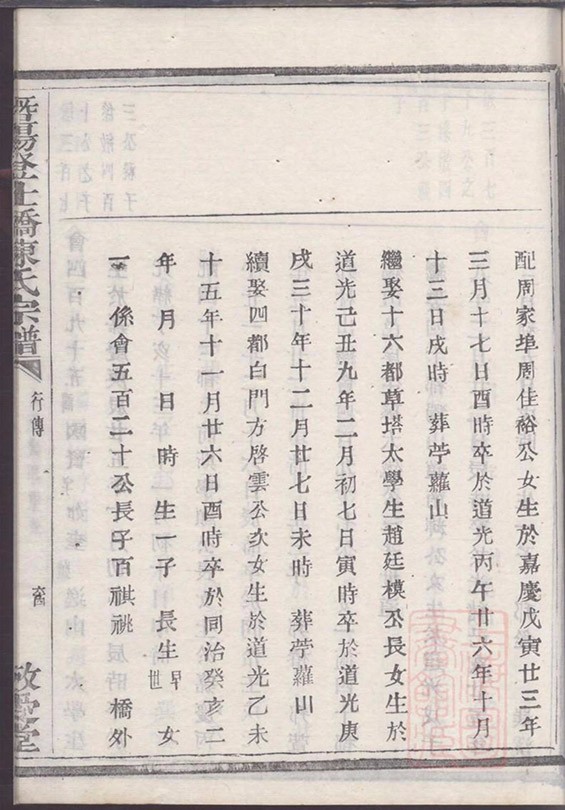 配周家埠周佳裕公女生於嘉慶戊寅廿三年
三月十七日酉時卒於道光丙午廿六年十月
十三日戌時 葬苧蘿山
繼娶十六都草塔太學生趙廷模公長女生於
道光己丑九年二月初七日寅時卒於道光庚
戌三十年十二月廿七日未時 葬苧蘿山
續娶四都白門方啓雲公次女生於道光乙未
十五年十一月廿六日酉時卒於同治癸亥二
年 月 日 時 生一子 長生早世 女
一 係會五百二十公長子百祺祧 橋外
暨陽登仕橋陳氏宗譜
行傳